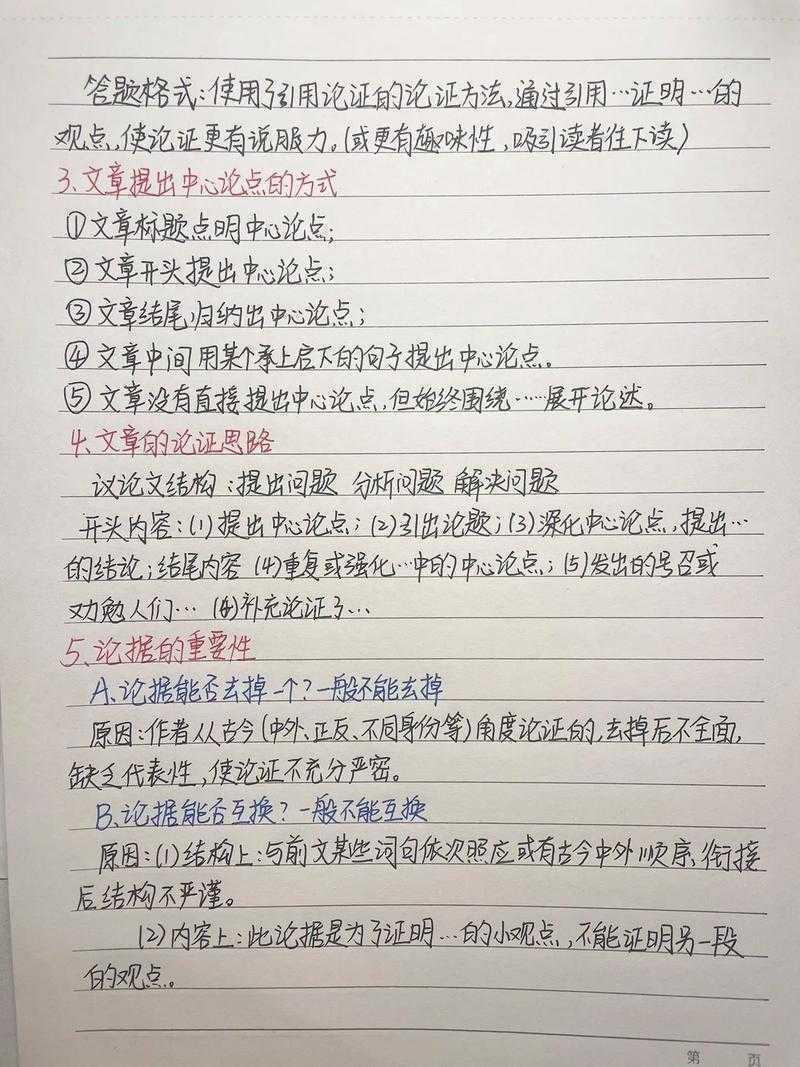 答题格式:使用了引用论证的论证方法,通过引用…证明…的
观点,使论证更有说服力。(或更有趣味性,吸引读者往下读)
3.文章提出中心论点的方式
①文章标题点明中心论点;
②文章开头提出中心论点;
③文章结尾归纳出中心论点;
④文章中间用某个承上启下的句子提出中心论点。
⑤文章没有直接提出中心论点,但始终围绕……展开论述。
4.文章的论证思路
议论文结构:提出问题 分析问题 解决问题
开头内容:(1)提出中心论点;(2)引出论题;(3)深化中心论点,提出…
的结论;结尾内容 (4)重复或强化…中的中心论点;(5)发出的号召或
劝勉人们… (6)补充论证了…
5、论据的重要性
A、论据能否去掉一个?一般不能去掉
原因:作者从古今(中外、正反、不同身份等)角度论证的,去掉后不全面,
缺乏代表性,使论证不充分严密。
B、论据能否互换?一般不能互换
原因:(1)结构上:与前文某些词句依次照应或有古今中外顺序,衔接
后结构不严谨。
(2)内容上:此论据是为了证明…的小观点,不能证明另一段
的观点。
第 页